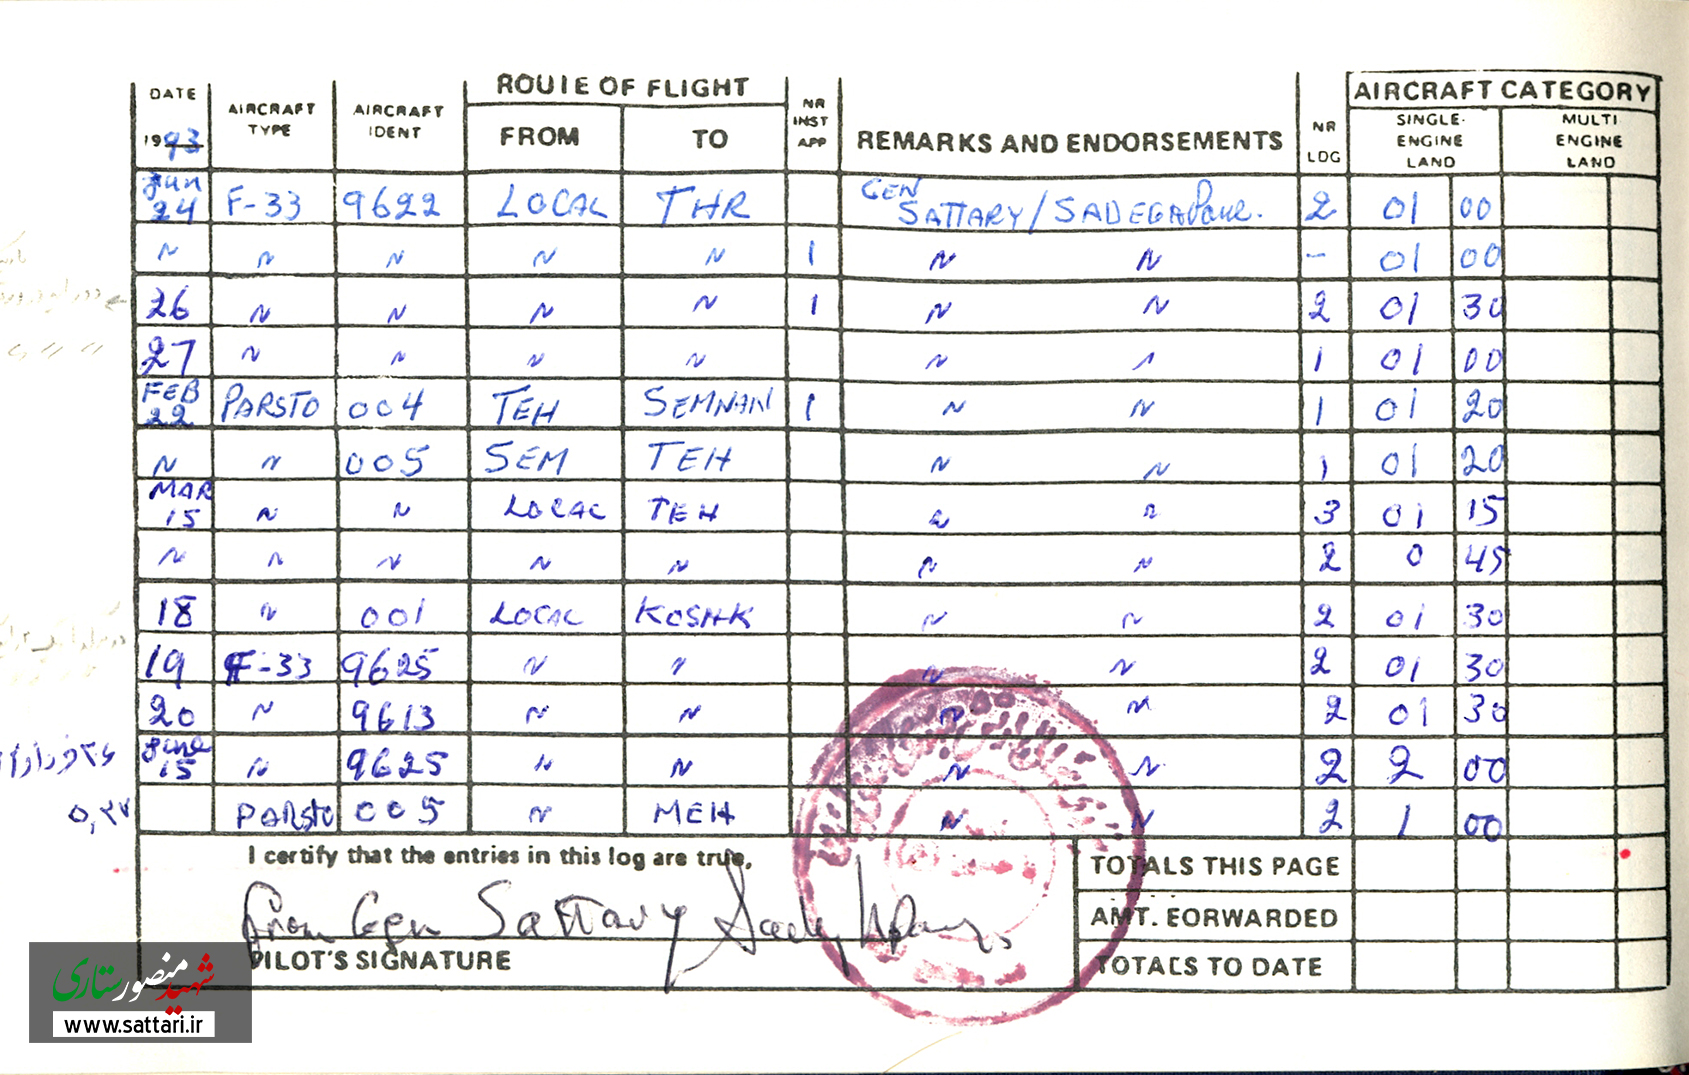 ROUTE OF FLIGHT
AIRCRAFT CATEGORY
DATE 1993 AIRCRAFT TYPE AIRCRAFT IDENT FROM TO NR INST APP REMARKS AND ENDORSEMENTS NR LDG SINGLE-ENGINE LAND MULTI ENGINE LAND
Jun 24 F-33 9622 LOCAL THR GEN SATTARY/SADEGAPOUR. 2 01 00
~ ~ ~ ~ ~ 1 ~ ~ - 01 00
26 ~ ~ ~ ~ 1 ~ ~ 2 01 30
27 ~ ~ ~ ~ ~ ~ 1 01 00
FEB 22 PARSTO 004 TEH SEMNAN 1 ~ ~ 1 01 20
~ ~ 005 SEM TEH ~ ~ 1 01 20
MAR 15 ~ ~ LOCAL TEH ~ ~ 3 01 15
~ ~ ~ ~ ~ ~ ~ 2 0 45
18 ~ 001 LOCAL KOSHK ~ ~ 2 01 30
19 F-33 9625 ~ ~ ~ ~ 2 01 30
20 ~ 9613 ~ ~ ~ ~ 2 01 30
June 15 ~ 9625 ~ ~ ~ ~ 2 2 00
PARSTO 005 ~ MEH ~ ~ 2 1 00
I certify that the entries in this log are true,
TOTALS THIS PAGE
from Gen Sattary
AMT. FORWARDED
PILOT'S SIGNATURE
TOTALS TO DATE
شهید منصور ستاری
www.sattari.ir